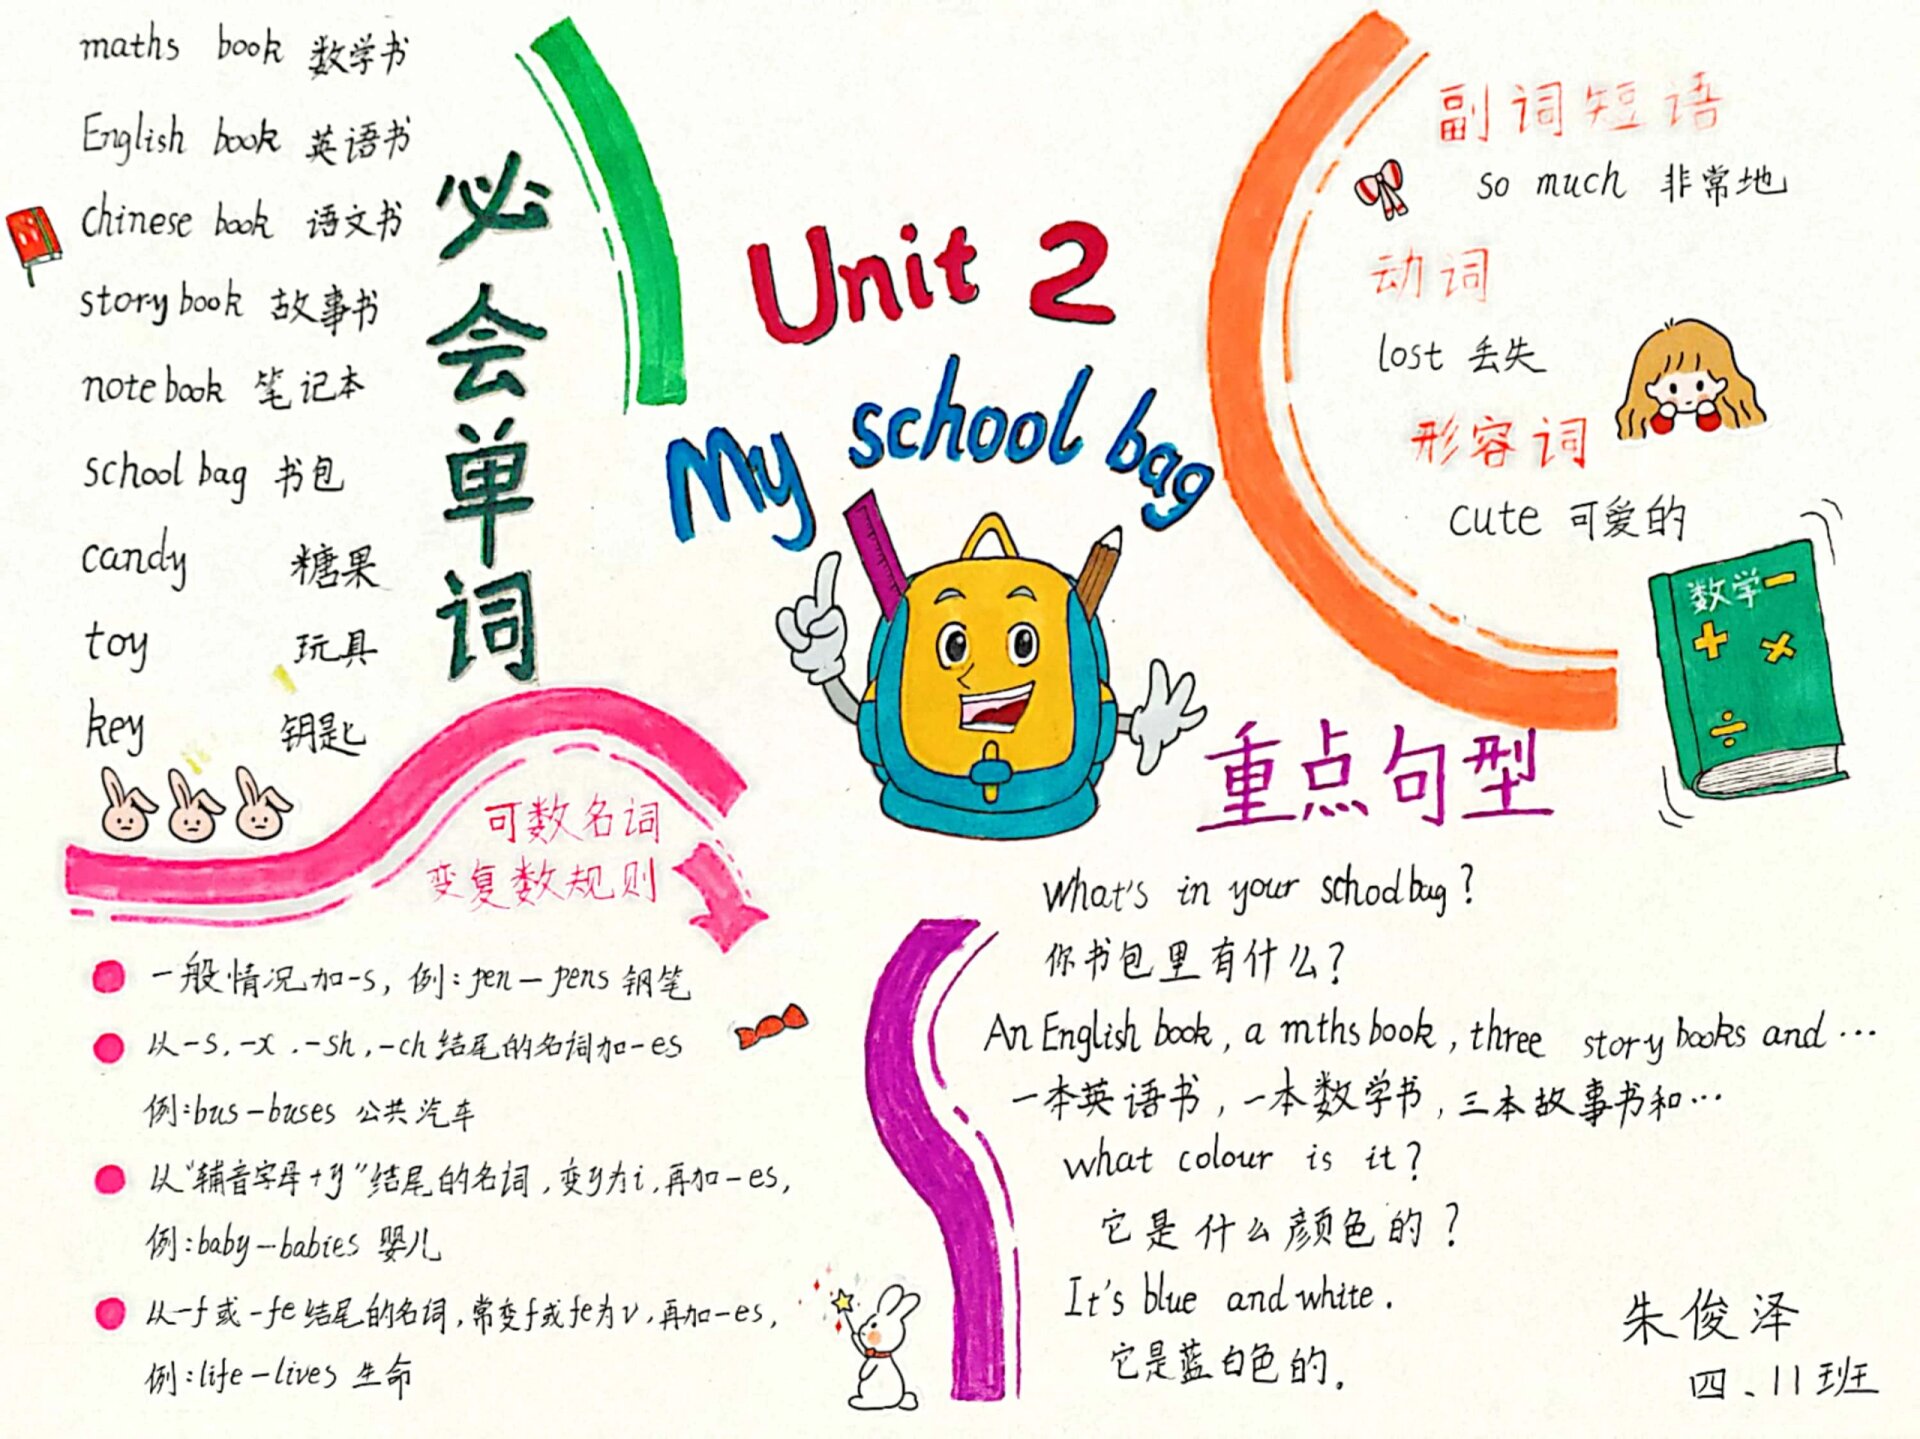 maths book 数学书
English book 英语书
Chinese book 语文书
story book 故事书
note book 笔记本
school bag 书包
candy 糖果
toy 玩具
key 钥匙
必会单词
Unit 2
My school bag
副词短语
so much 非常地
动词
lost 丢失
形容词
cute 可爱的
数学
重点句型
What's in your schoolbag?
你书包里有什么?
An English book, a mths book, three story books and …
一本英语书,一本数学书,三本故事书和…
what colour is it?
它是什么颜色的?
It's blue and white.
它是蓝白色的.
可数名词
变复数规则
一般情况加-s, 例: pen—pens 钢笔
以-s.-x.-sh,-ch结尾的名词加-es
例:bus—buses 公共汽车
以"辅音字母+y"结尾的名词,变y为i,再加-es,
例:baby—babies 婴儿
以-f或-fe结尾的名词,常变f或fe为v,再加-es,
例:life—lives 生命
朱俊泽
四、11班